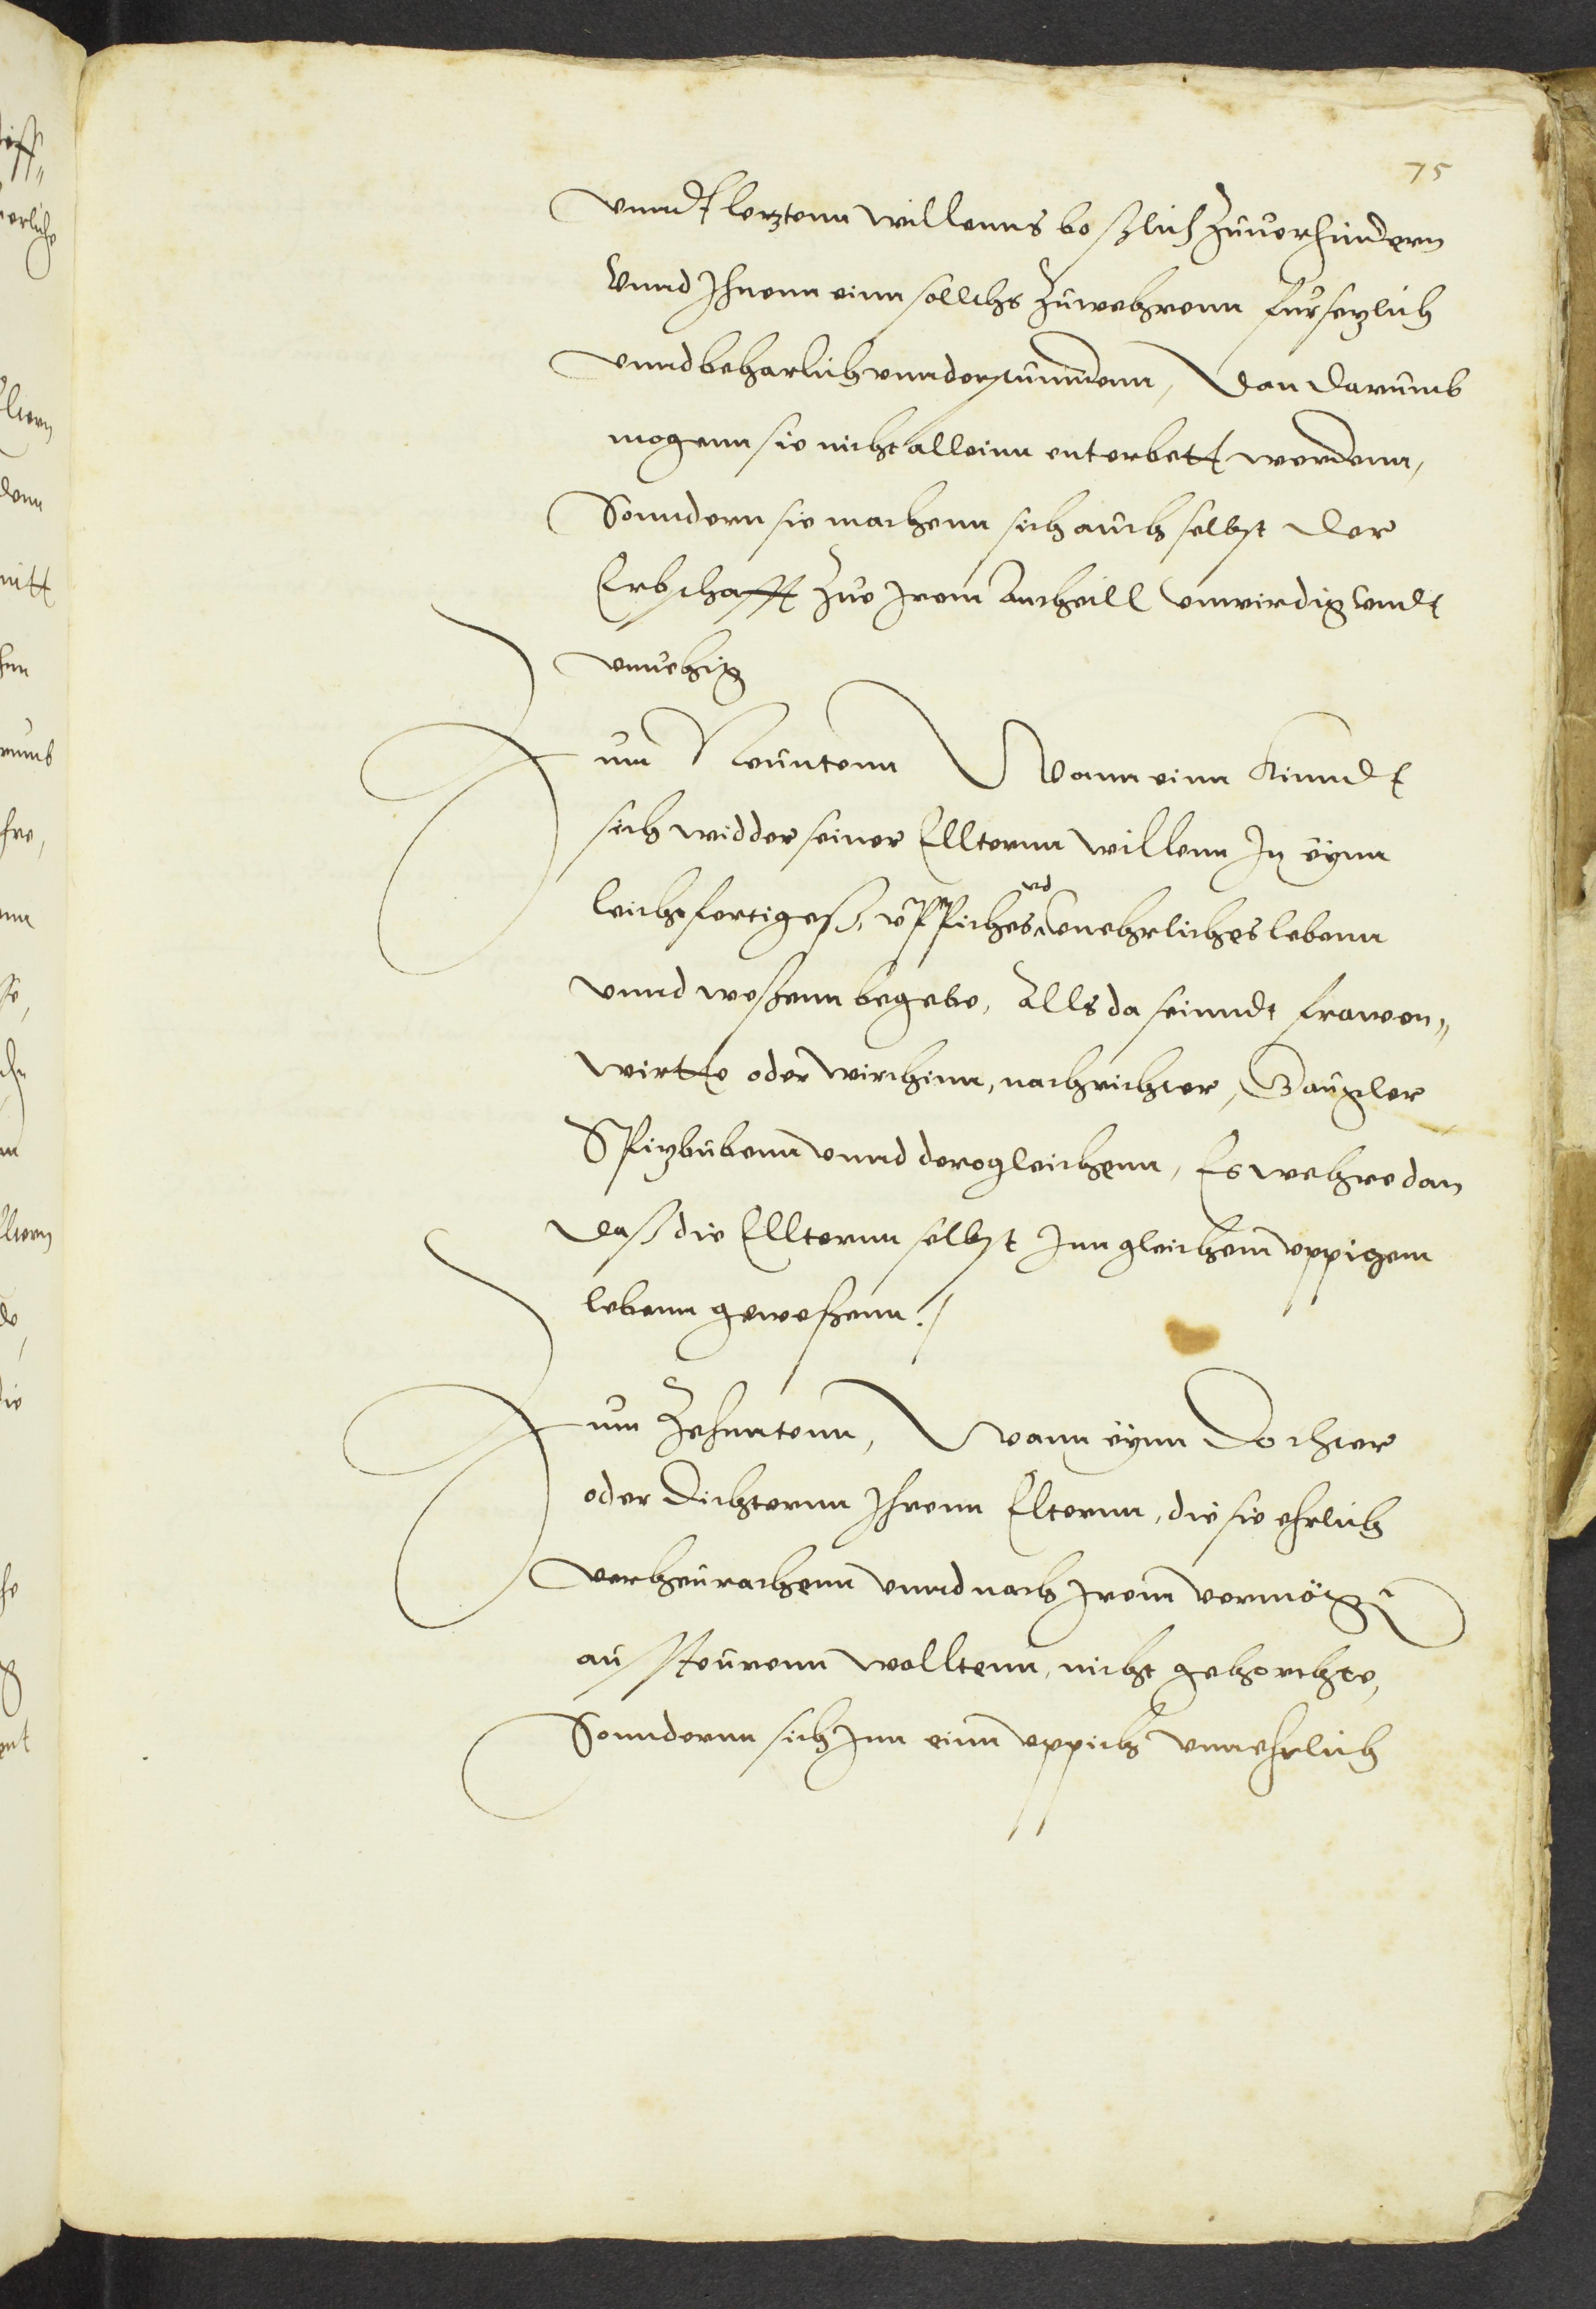 75
vnndt letztenn willenns boßlich zuuerhindern
Vnnd Ihnenn einn sollchs zuwehrenn fürsezlich
vnnd beharlich vnnderstündenn, Dan darumb
mogenn sie nicht alleinn enterbett werdenn,
Sonndern sie machenn sich auch selbst der
Erbschafft zue irem Antheill vnwirdig vndt
vnuehig
Zum Neuntenn Wann ein Kinndt
sich widder seiner Ellternn willenn In eynn
leichtfertigeß, üppiches vnd vnehrliches lebenn
vnnd weßenn begebe, Alls da seinndt frawen„
wirtte oder wirthinn, nachrichter, Gaugler
Spizbubenn vnnd derogleichenn, Es wehre dan
daß die Elltternn selbst Inn gleichem vppigem
lebenn geweßenn./
Zum Zehenntenn, Wann eynn Dochter
oder Dichternn Ihrenn Elternn, die sie ehrlich
verheurathenn vnnd nach irem vermögen
außsteurenn wolltenn, nicht gehorchte,
Sonndernn sich Inn einn vppich vnnehrlich